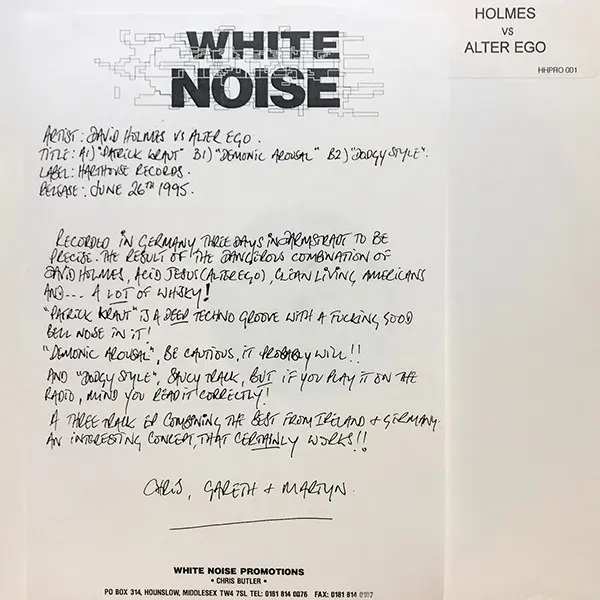 HOLMES
vs
ALTER EGO
HHPRO 001
WHITE
NOISE
ARTIST: DAVID HOLMES VS ALTER EGO.
TITLE: A1) "PATRICK KRAUT" B1) "DEMONIC AROUSAL" B2) "DODGY STYLE".
LABEL: HARTHOUSE RECORDS.
RELEASE: JUNE 26TH 1995.
RECORDED IN GERMANY, THREE DAYS IN DARMSTRADT TO BE
PRECISE. THE RESULT OF THE DANGEROUS COMBINATION OF
DAVID HOLMES, ACID JESUS (ALTER EGO), CLEAN LIVING AMERICANS
AND--- A LOT OF WHISKY!
"PATRICK KRAUT" IS A DEEP TECHNO GROOVE WITH A FUCKING GOOD
BELL NOISE IN IT!
"DEMONIC AROUSAL", BE CAUTIOUS, IT PROBABLY WILL!!
AND "DODGY STYLE", SAUCY TRACK, BUT IF YOU PLAY IT ON THE
RADIO, MIND YOU READ IT CORRECTLY!
A THREE TRACK EP COMBINING THE BEST FROM IRELAND & GERMANY.
AN INTERESTING CONCEPT, THAT CERTAINLY WORKS!!
CHRIS, GARETH & MARTYN.
WHITE NOISE PROMOTIONS
• CHRIS BUTLER •
PO BOX 314, HOUNSLOW, MIDDLESEX TW4 7SL TEL: 0181 814 0076 FAX: 0181 814 0107